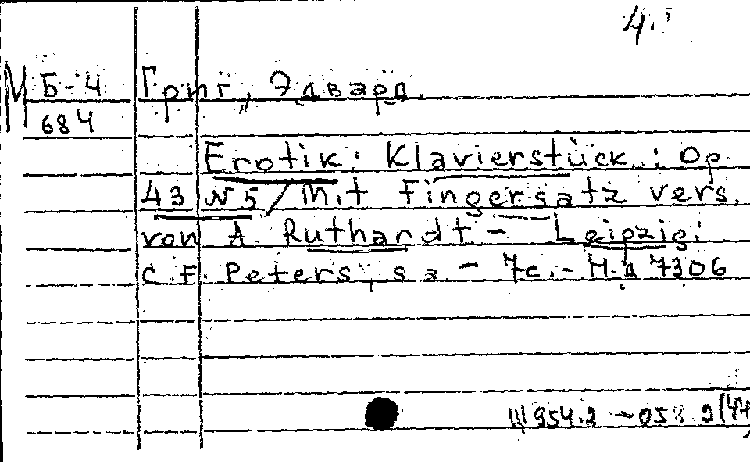 4.
М Б-4 Григ, Эдвард.
684
Erotik: Klavierstück: Op
43 N5/Mit Fingersatz vers.
von A. Ruthardt - Leipzig:
C. F. Peters, s a - 7c. - Н.д 7306